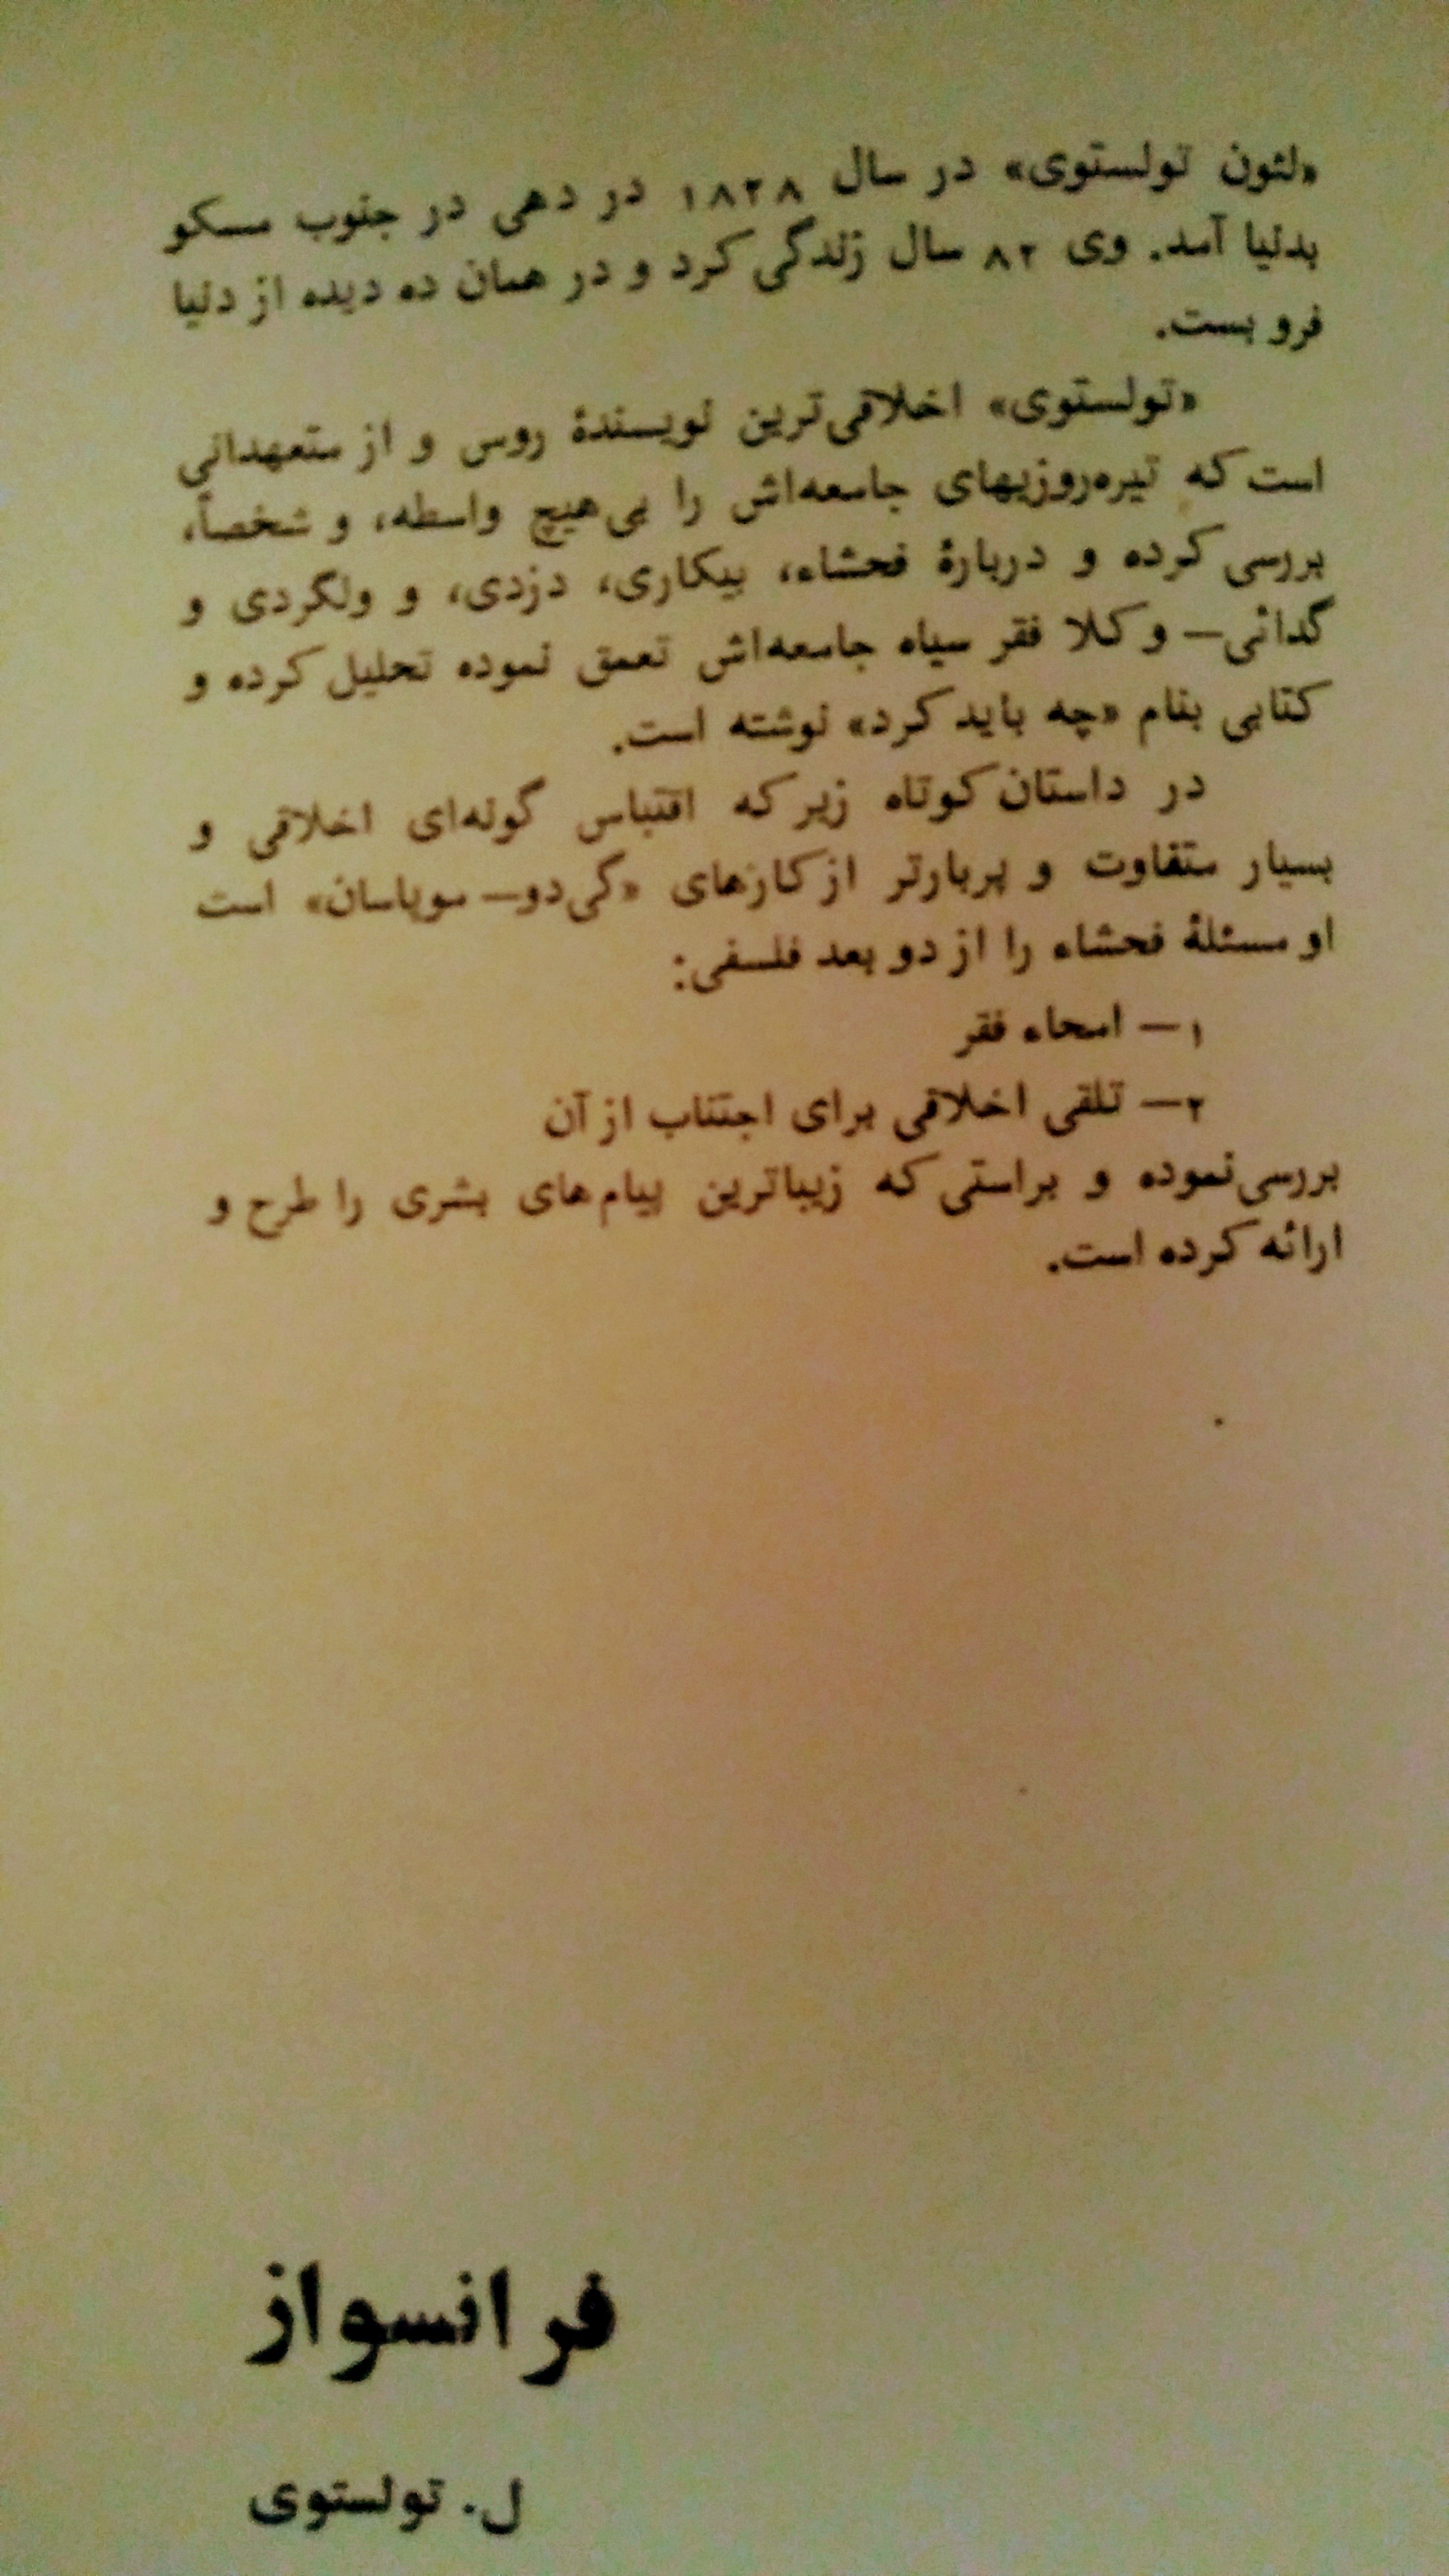 «لئون تولستوی» در سال ۱۸۲۸ در دهی در جنوب مسکو
بدنیا آمد. وی ۸۲ سال زندگی کرد و در همان ده دیده از دنیا
فرو بست.
«تولستوی» اخلاقی‌ترین نویسندهٔ روس و از متعهدانی
است که تیره‌روزیهای جامعه‌اش را بی‌هیچ واسطه، و شخصاً،
بررسی کرده و دربارهٔ فحشاء، بیکاری، دزدی، و ولگردی و
گدائی— و کلا فقر سیاه جامعه‌اش تعمق نموده تحلیل کرده و
کتابی بنام «چه باید کرد» نوشته است.
در داستان کوتاه زیر که اقتباس گونه‌ای اخلاقی و
بسیار متفاوت و پربارتر از کارهای «گی‌دو— موپاسان» است
او مسئلهٔ فحشاء را از دو بعد فلسفی:
۱— امحاء فقر
۲— تلقی اخلاقی برای اجتناب از آن
بررسی‌نموده و براستی که زیباترین پیام‌های بشری را طرح و
ارائه کرده است.
فرانسواز
ل. تولستوی